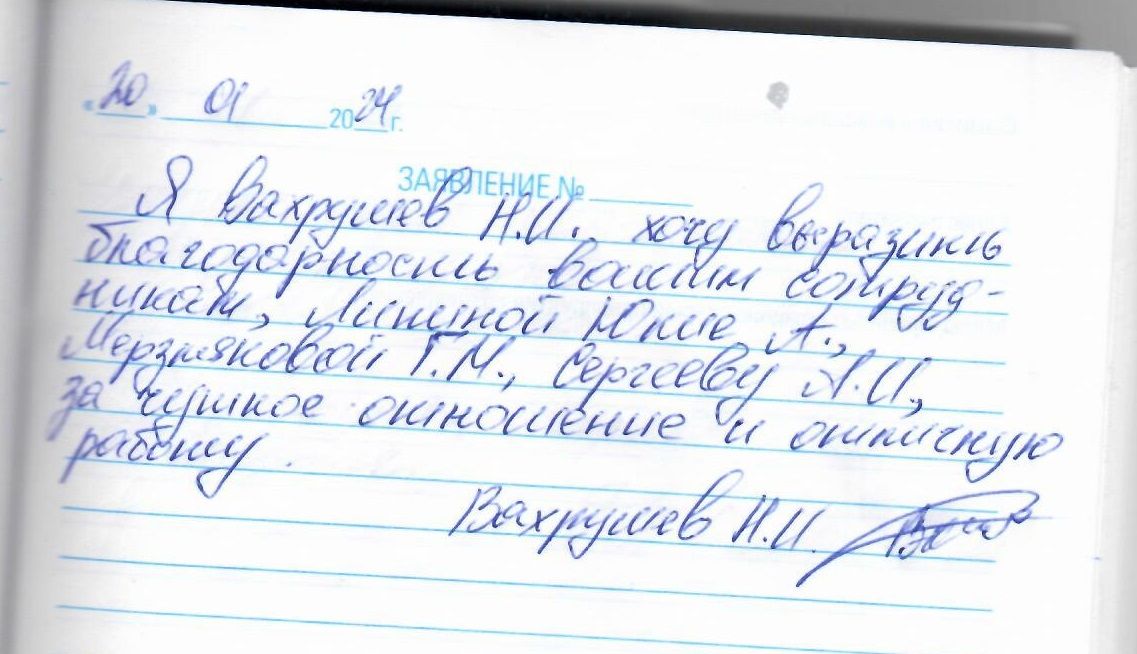 «20» 01 2024 г.
ЗАЯВЛЕНИЕ №
Я Вахрушев Н.И. хочу выразить
благодарность вашим сотруд-
никам, Липиной Юлие А.,
Мерзляковой Г.М., Сергееву А.И.,
за чуткое отношение и отличную
работу.
Вахрушев Н.И.